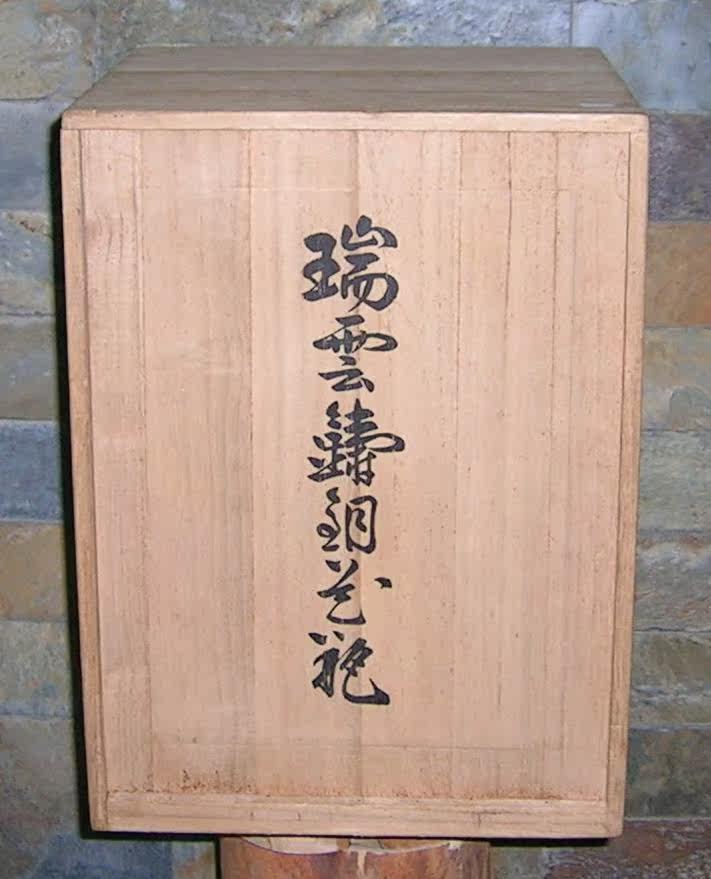 瑞雲鑄銅花瓶